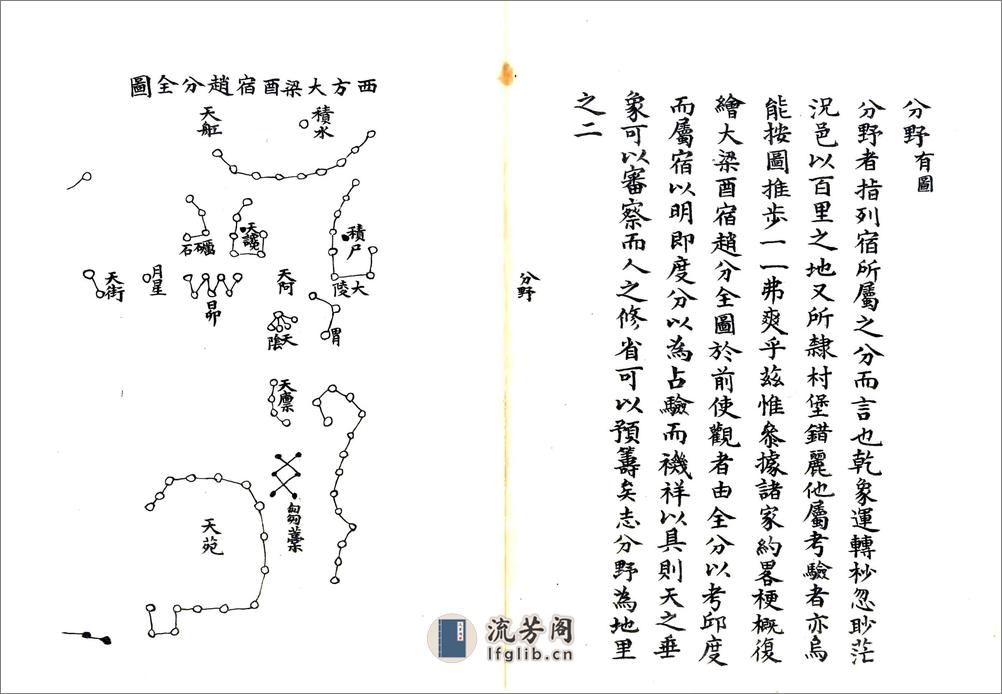 分野有圖
分野者指列宿所屬之分而言也乾象運轉杪忽眇茫
況邑以百里之地又所隸村堡錯麗他屬考驗者亦烏
能按圖推步一一弗爽乎茲惟叅據諸家約畧梗概復
繪大梁酉宿趙分全圖於前使觀者由全分以考邱度
而屬宿以明即度分以為占驗而禨祥以具則天之垂
象可以審察而人之修省可以預籌矣志分野為地里
之二
分野
西方大梁酉宿趙分全圖
積水
天舡
積尸
大陵
天讒
石礪
天阿
昴
月星
天街
胃
天陰
天廪
芻藁
天苑
流芳阁
lfglib.cn